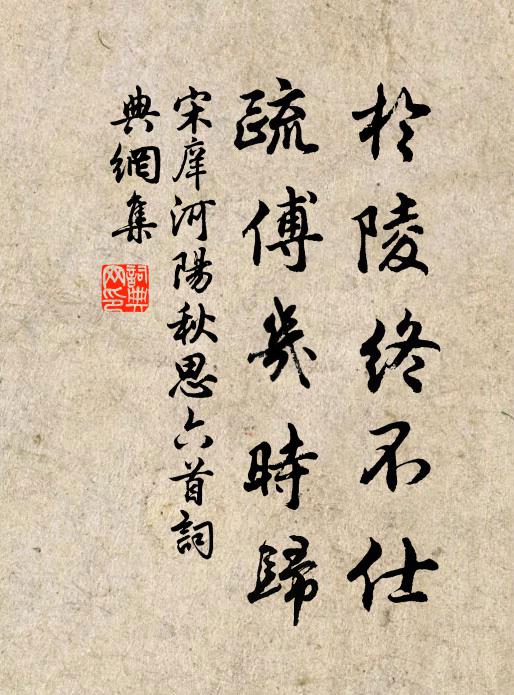 於陵終不仕
疏傅幾時歸
宋庠河陽秋思六首詞
典網集
詞典
网印